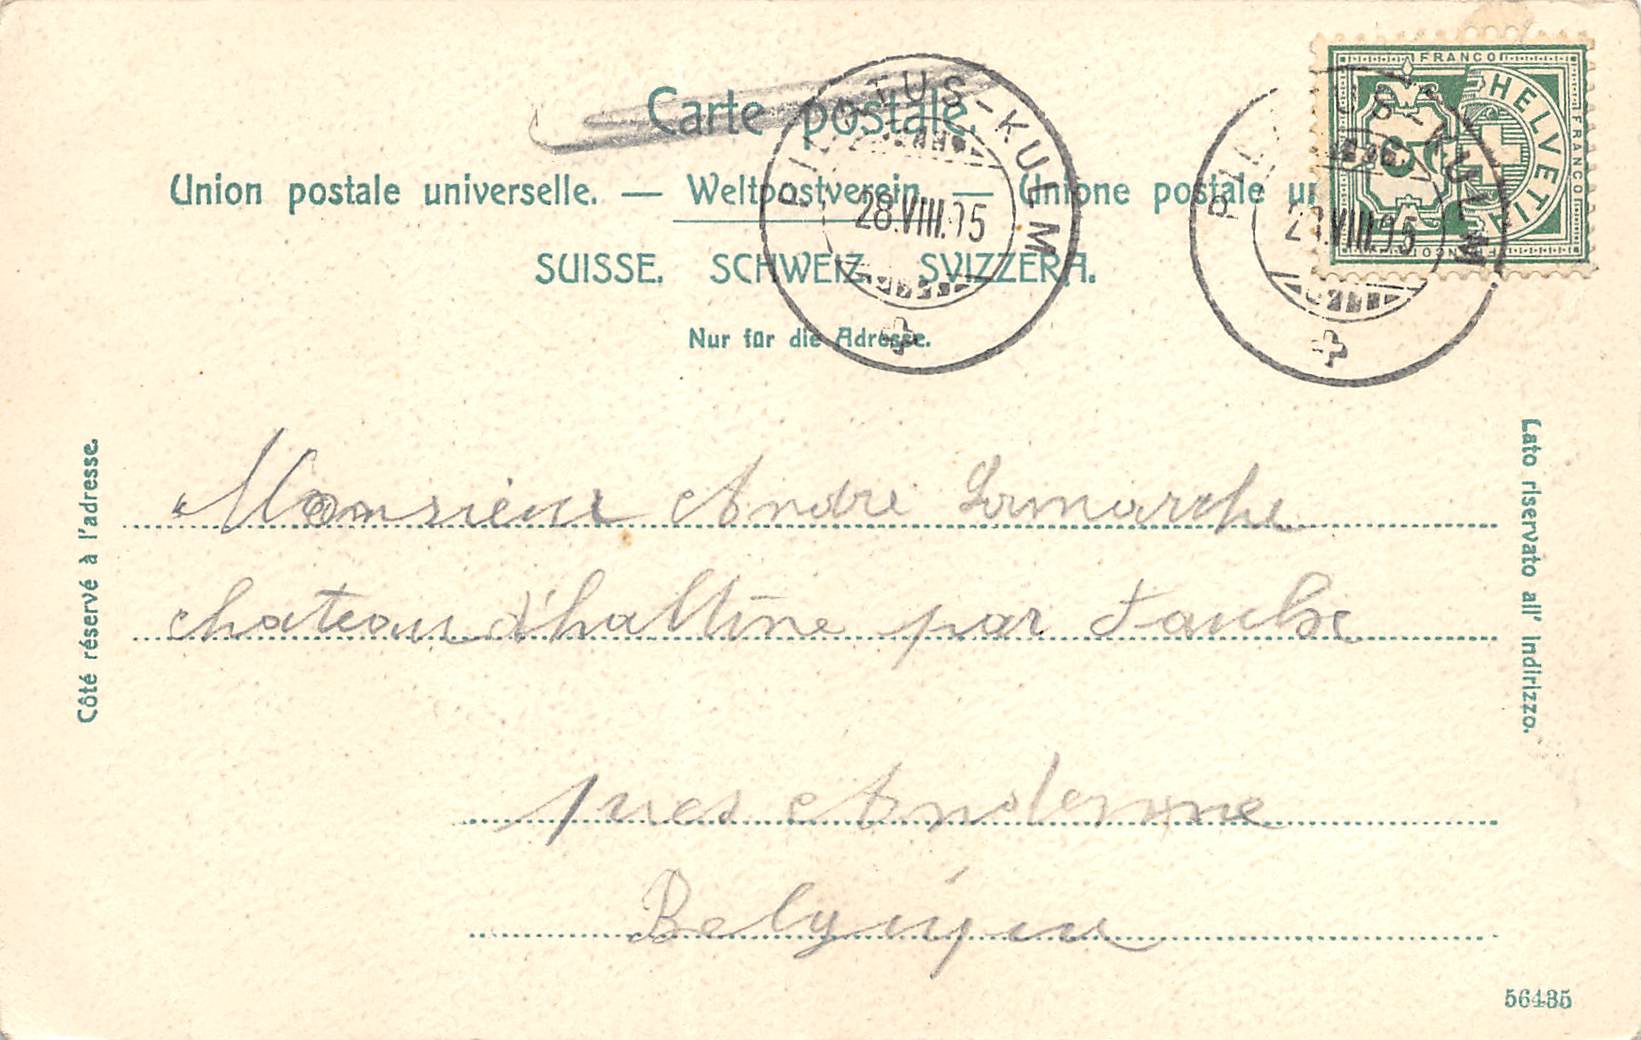 Carte postale.
Union postale universelle. — Weltpostverein. — Unione postale un
SUISSE. SCHWEIZ. SVIZZERA.
Nur für die Adresse.
PILATUS-KULM
28.VIII.05
PILATUS-KULM
28.VIII.05
FRANCO
HELVETIA
FRANCO
FRANCO
5
Côté réservé à l'adresse.
Lato riservato all' indirizzo.
Monsieur André Lamarche
chateau d'haltine par
pres Andenne
Belgique
56435